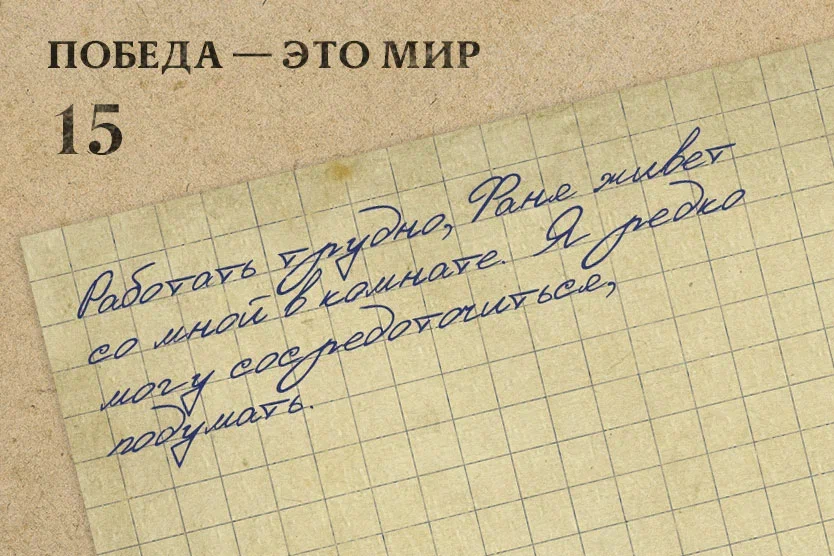 ПОБЕДА — ЭТО МИР
15
Работать трудно, Фаня живет
со мной в комнате. Я редко
могу сосредоточиться,
подумать.